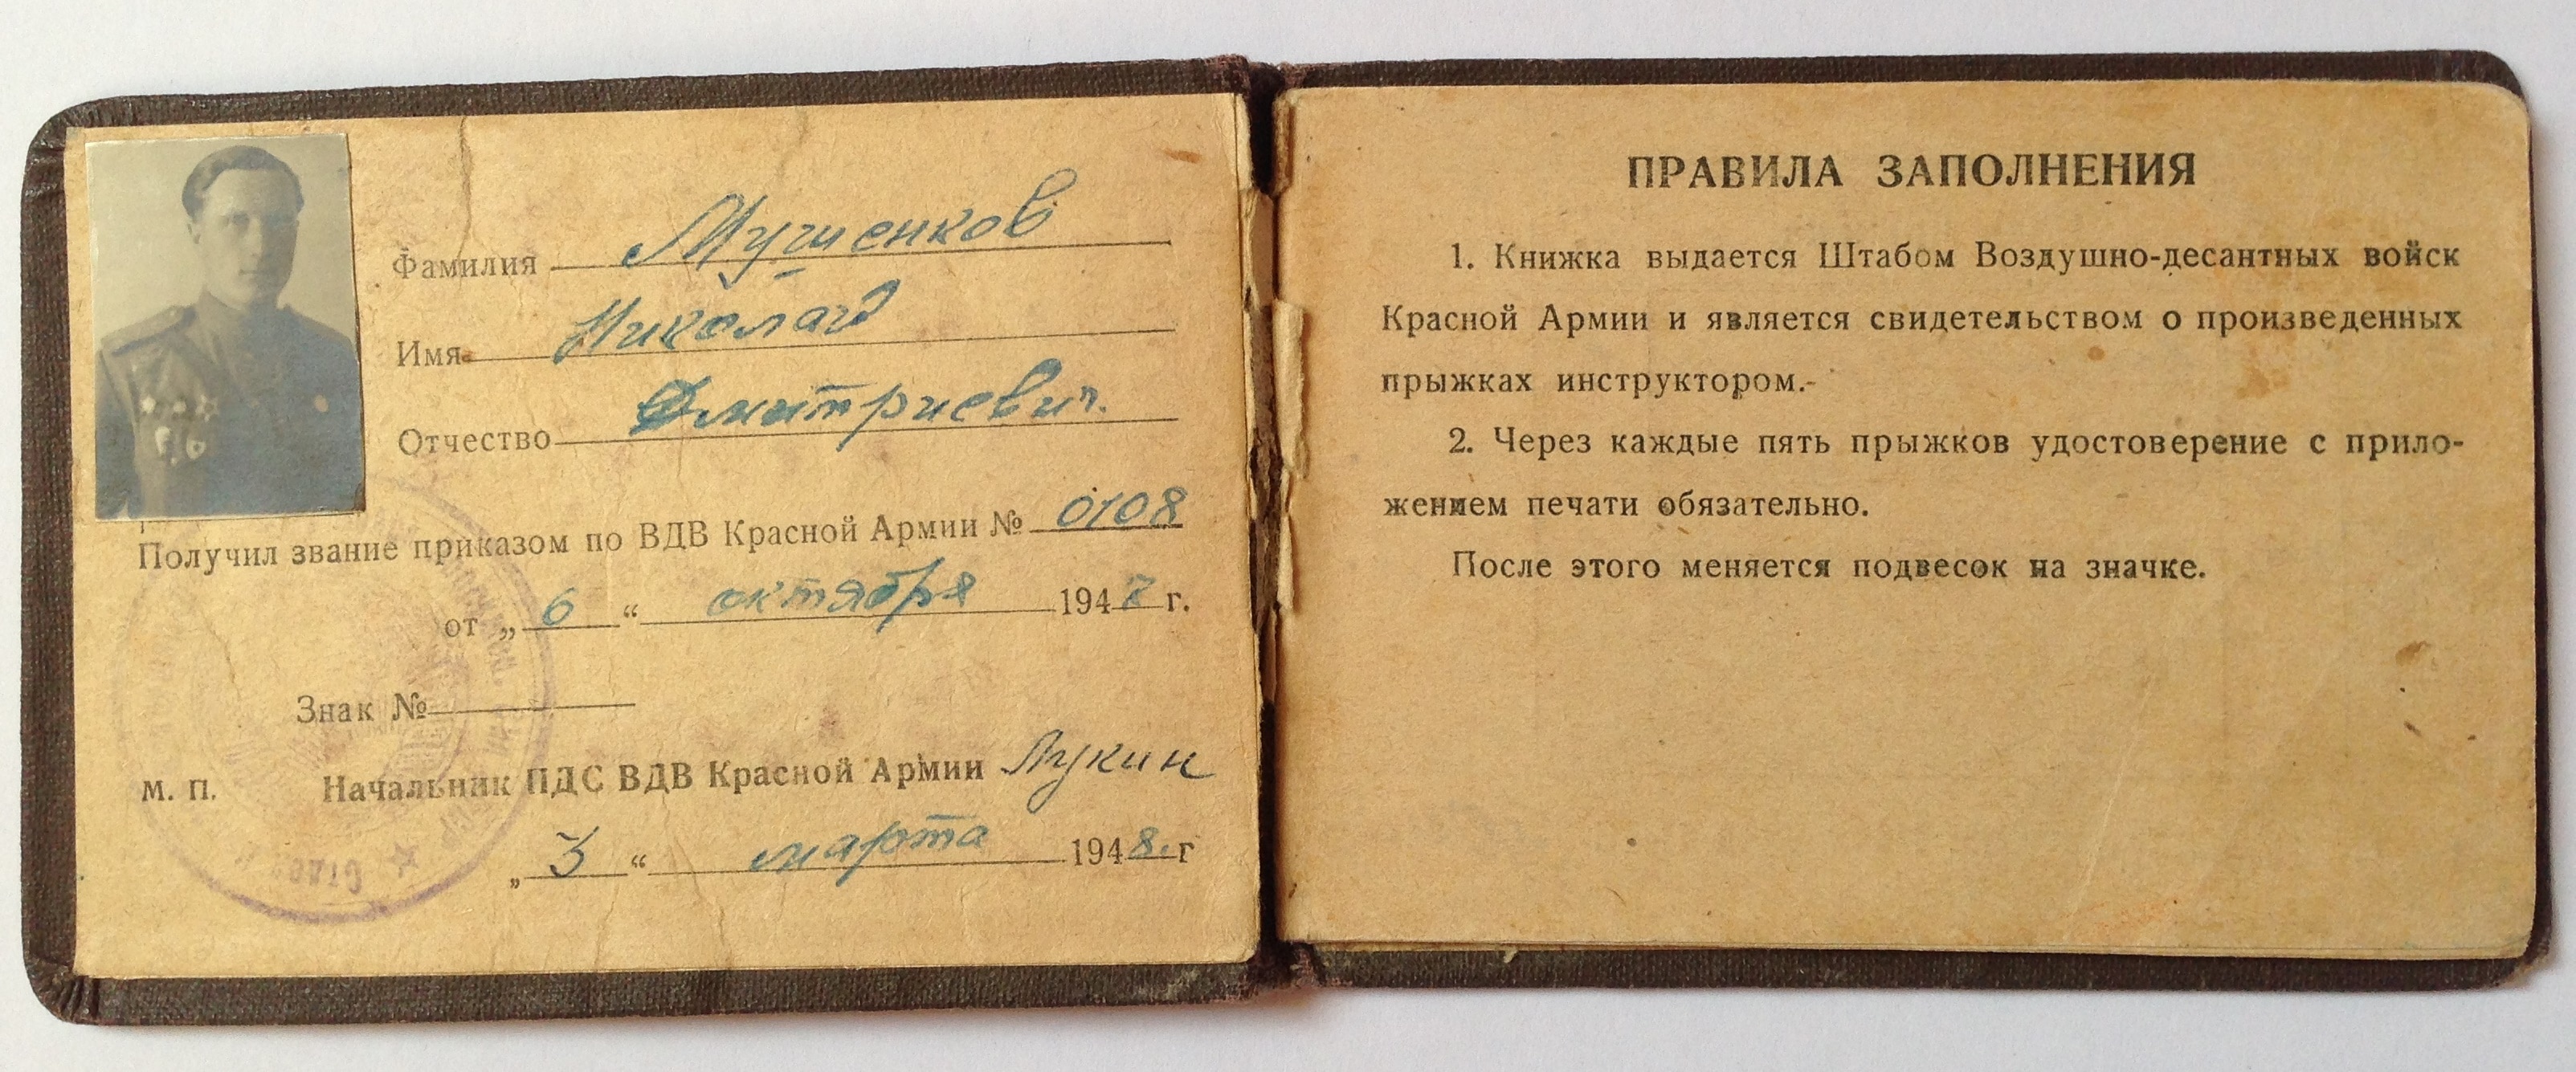 Фамилия Мушенков
Имя Николай
Отчество Дмитриевич.
Получил звание приказом по ВДВ Красной Армии № 0108
от „ 6 “ октября 1947 г.
Знак №
М. П. Начальник ПДС ВДВ Красной Армии Лукин
„ 3 “ марта 1948. г
ПРАВИЛА ЗАПОЛНЕНИЯ
1. Книжка выдается Штабом Воздушно-десантных войск
Красной Армии и является свидетельством о произведенных
прыжках инструктором.-
2. Через каждые пять прыжков удостоверение с прило-
жением печати обязательно.
После этого меняется подвесок на значке.